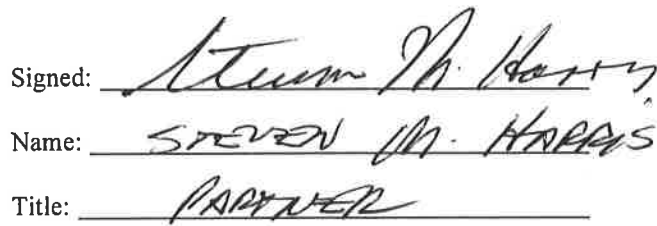 Signed: Steven M. Harris
Name: STEVEN M. HARRIS
Title: PARTNER